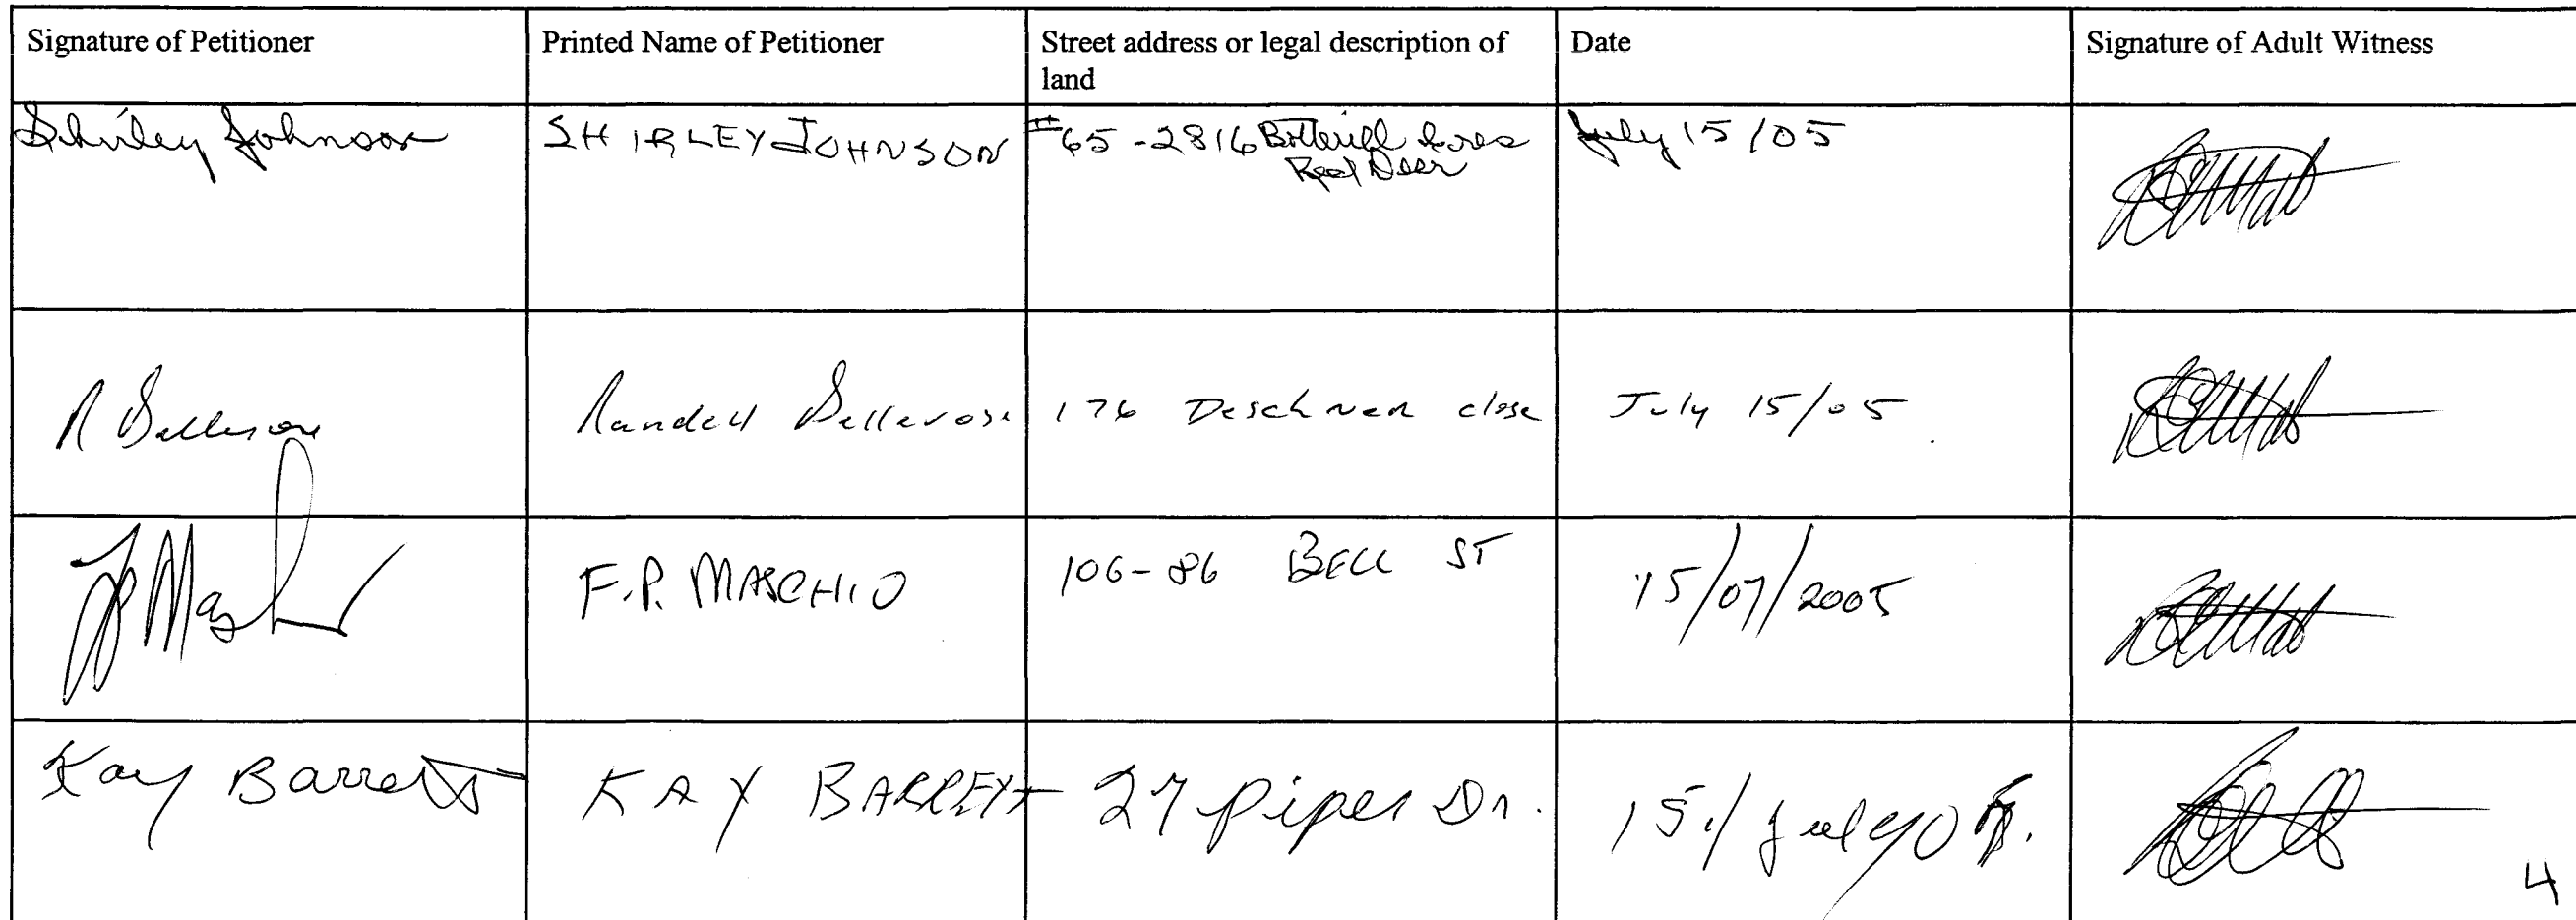 Signature of Petitioner
Printed Name of Petitioner
Street address or legal description of
land
Date
Signature of Adult Witness
Shirley Johnson
SHIRLEY JOHNSON
#65-2816 Botterill Cres
Red Deer
July 15/05
R Bellerose
Randell Bellerose
176 Deschner close
July 15/05.
F.P. MASCHIO
106-86 BELL ST
15/07/2005
Kay Barrett
KAY BARRETT
27 Piper Dr.
15/July 05.
4